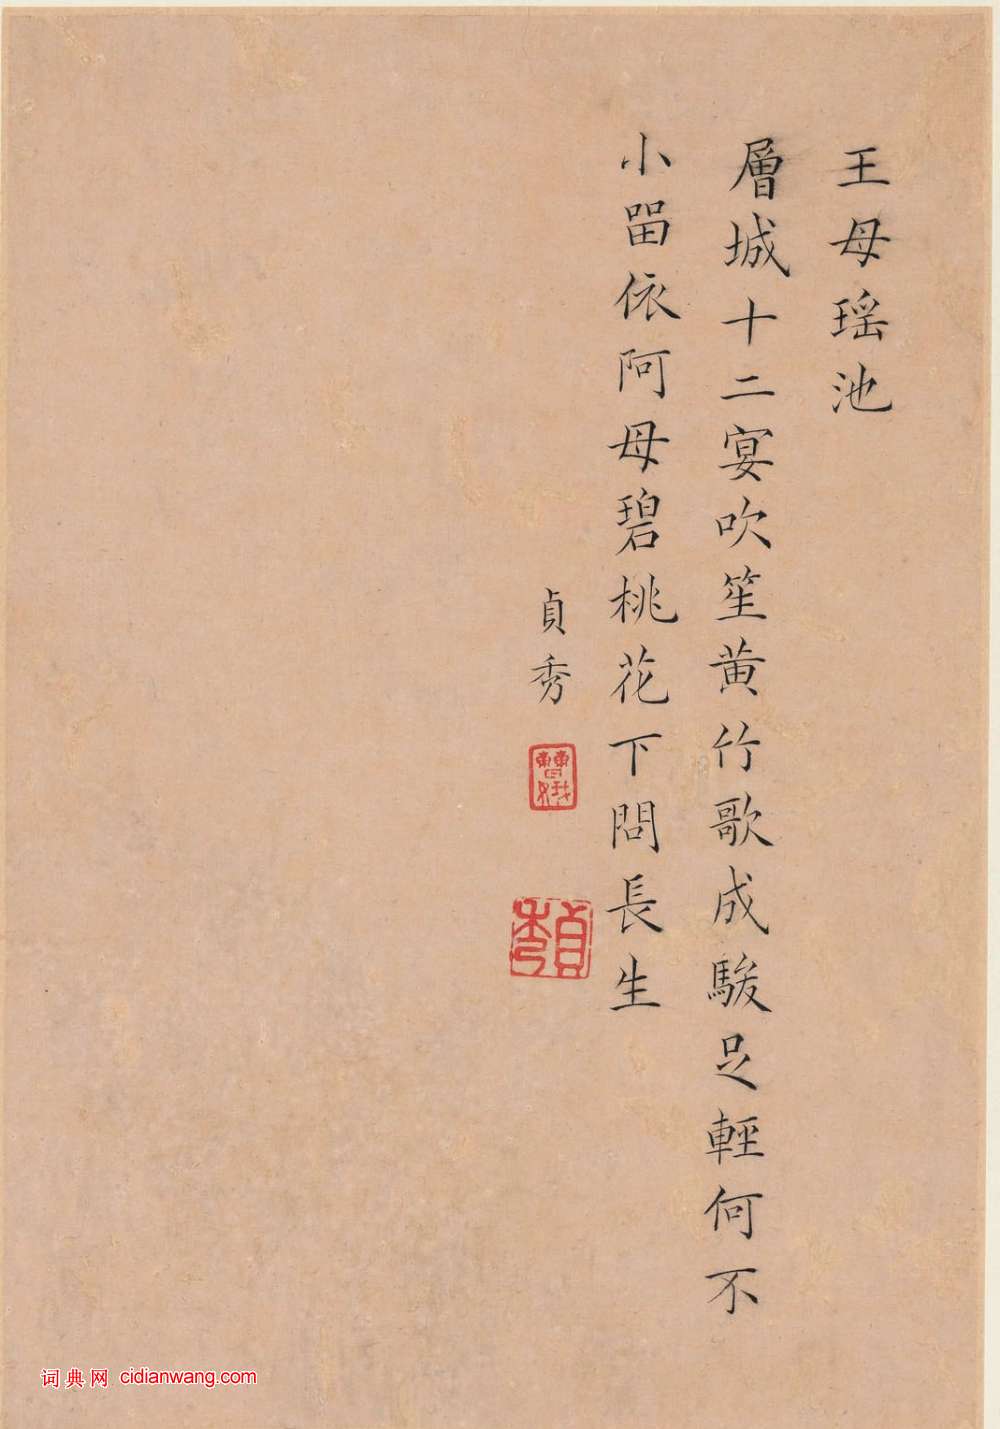 王母瑶池
層城十二宴吹笙黄竹歌成駿足輕何不
小畱依阿母碧桃花下問長生
貞秀
詞典网 cidianwang.com